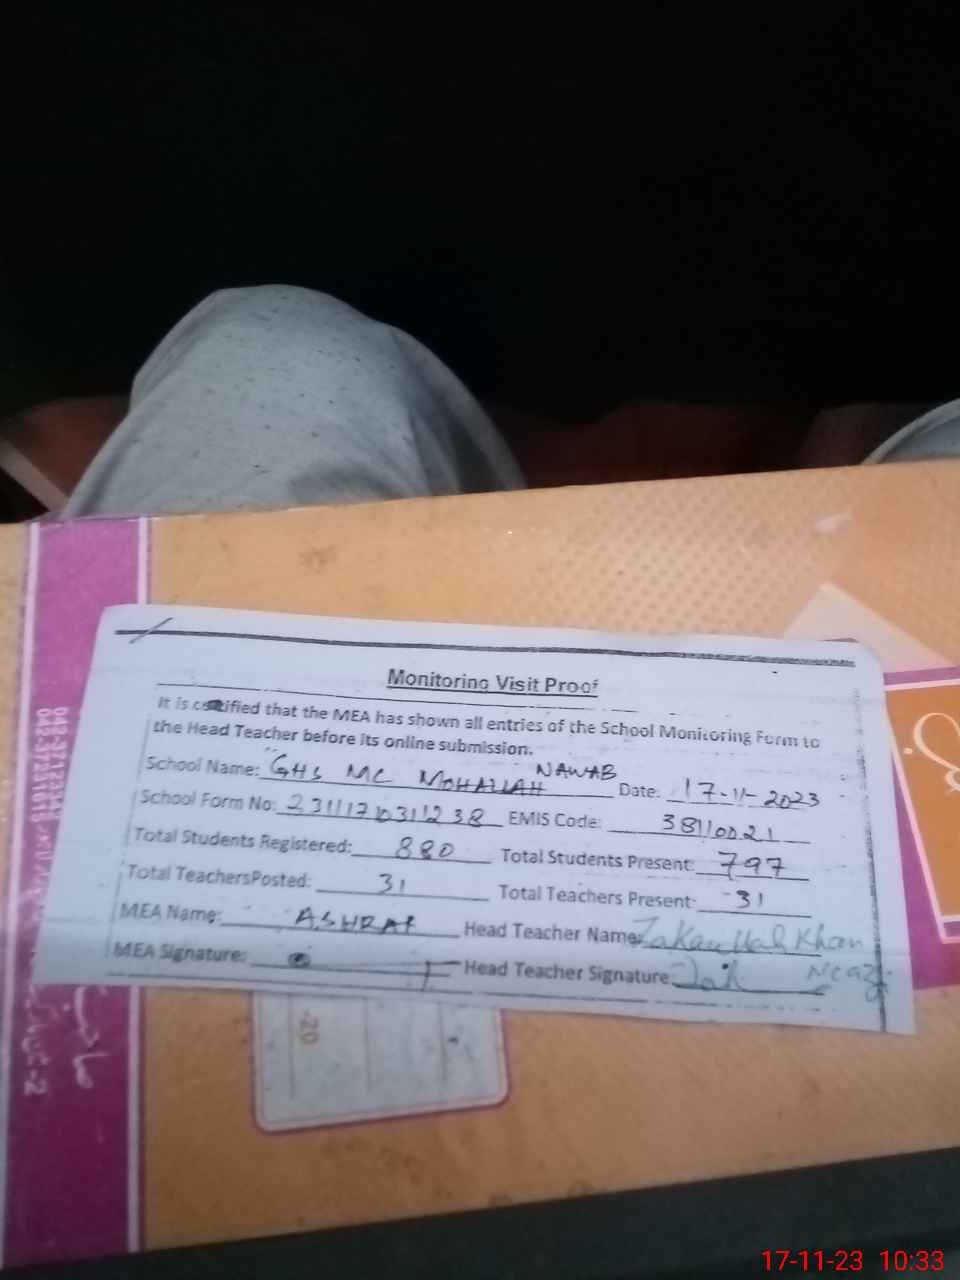 Monitoring Visit Proof
It is certified that the MEA has shown all entries of the School Monitoring Form to
the Head Teacher before its online submission.
School Name: GHS MC MOHALLAH NAWAB Date: 17-11-2023
School Form No: 23111710311238 EMIS Code: 38110021
Total Students Registered: 880 Total Students Present: 797
Total TeachersPosted: 31 Total Teachers Present: 31
MEA Name: ASHRAF Head Teacher Name: Zakaullah Khan
MEA Signature: Head Teacher Signature: Niazi
-20
17-11-23 10:33